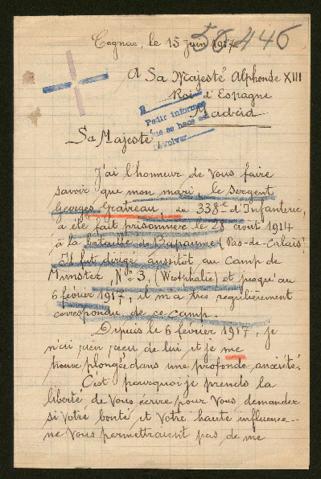 58446
Cognac, le 15 juin 1917
A Sa Majesté Alphonse XIII
Roi d'Espagne
Madrid
Pedir informes
que se hace al
devolver
Sa Majesté
J'ai l'honneur de Vous faire
savoir que mon mari, le Sergent
Georges Gratreau, du 338e d'Infanterie,
a été fait prisonnier le 28 août 1914
à la bataille de Bapaume (Pas-de-Calais)
Il fut dirigé aussitôt au Camp de
Munster No 3, (Westphalie) et jusqu'au
6 février 1917, il m'a très régulièrement
correspondu de ce camp.
Depuis le 6 février 1917, je
n'ai rien reçu de lui et je me
trouve plongée dans une profonde anxiété.
C'est pourquoi je prends la
liberté de Vous écrire pour Vous demander
si Votre bonté et Votre haute influence
ne Vous permettraient pas de me